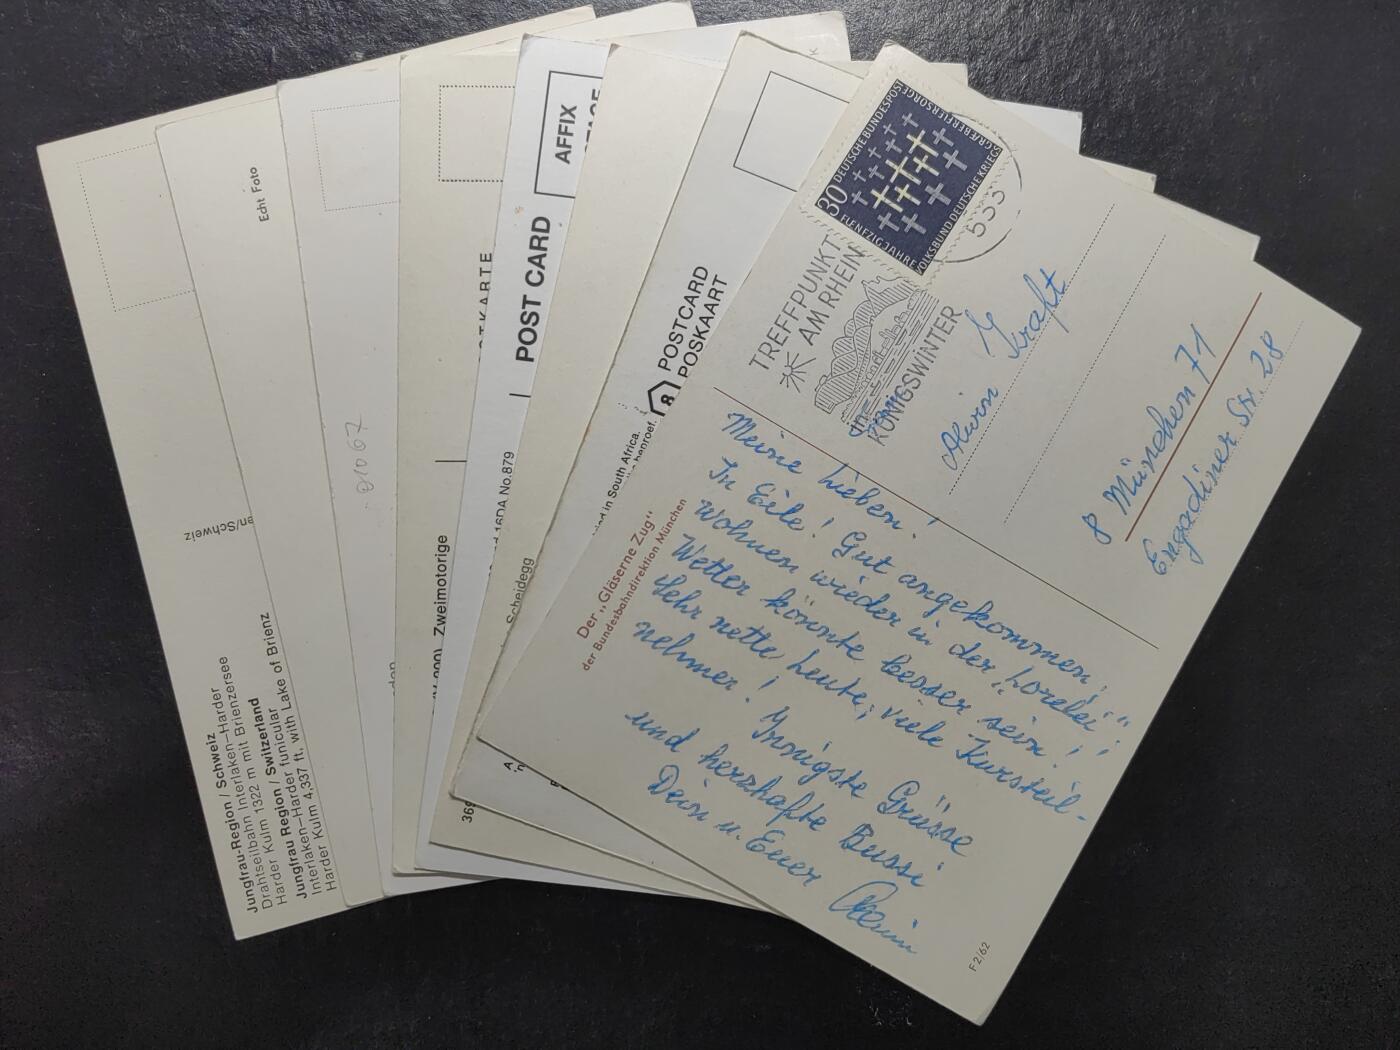 Jungfrau-Region / Schweiz
Drahtseilbahn Interlaken–Harder
Harder Kulm 1322 m mit Brienzersee
Jungfrau Region / Switzerland
Interlaken–Harder funicular
Harder Kulm 4,337 ft, with Lake of Brienz
en/Schweiz
Echt Foto
01067
den
TKARTE
Zweimotorige
AFFIX
POST CARD
16DA No.879
Scheidegg
369
POSTCARD
POSKAART
8
in South Africa.
30
DEUTSCHE BUNDESPOST
FUENFZIG JAHRE
VOLKSBUND DEUTSCHE KRIEGS
GRÆBERFUERSORGE
533
TREFFPUNKT
AM RHEIN
KÖNIGSWINTER
Kraft
8 München 71
Engadiner Str. 28
Der „Gläserne Zug"
der Bundesbahndirektion München
Meine Lieben!
In Eile! Gut angekommen,
wohnen wieder in der „Lorelei";
Wetter könnte besser sein!
Sehr nette Leute, viele Kursteil-
nehmer!
Innigste Grüsse
und herzhafte Bussi
Dein u. Euer
F 2/62